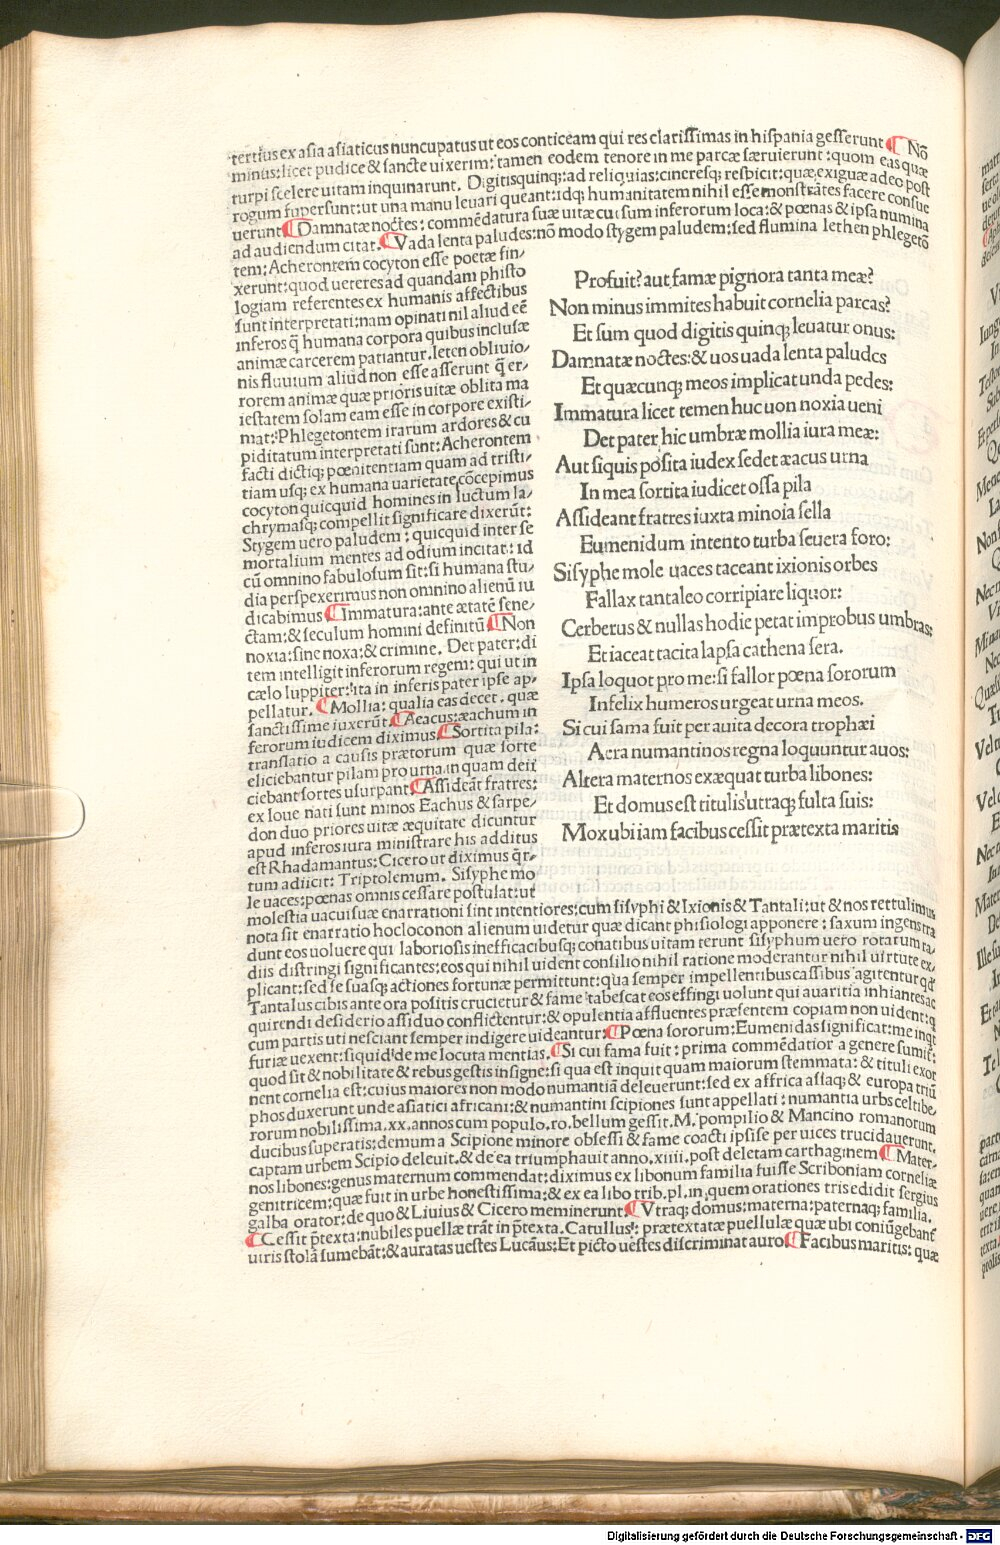 tertius ex asia asiaticus nuncupatus ut eos conticeam qui res clarissimas in hispania gesserunt ¶ Nõ
minus: licet pudice & sancte uixerim: tamen eodem tenore in me parcæ særuierunt: quom eas quæ
turpi scelere uitam inquinarunt. Digitisquinq; ad reliquias: cineresq; respicit: quæ exiguæ adeo post
rogum supersunt: ut una manu leuari queant: idq; humanitatem nihil esse monstrãtes facere consue
uerunt ¶ Damnatæ noctes: commẽdatura suæ uitæ cursum inferorum loca: & pœnas & ipsa numina
ad audiendum citat. ¶ Vada lenta paludes: nõ modo stygem paludem: sed flumina lethen phlegetõ
tem: Acherontem cocyton esse poetæ fin-
xerunt: quod ueteres ad quandam phisto
logiam referentes ex humanis affectibus
sunt interpretati: nam opinati nil aliud eẽ
inferos q̃ humana corpora quibus inclusæ
animæ carcerem patiantur. leten obliuio-
nis fluuium aliud non esse asserunt q̃ er-
rorem animæ quæ prioris uitæ oblita ma
iestatem solam eam esse in corpore existi-
mat: Phlegetontem irarum ardores & cu
piditatum interpretati sunt: Acherontem
facti dictiq; pœnitentiam quam ad tristi-
tiam usq; ex humana uarietate cõcepimus
cocyton quicquid homines in luctum la-
chrymasq; compellit significare dixerũt:
Stygem uero paludem: quicquid inter se
mortalium mentes ad odium incitat: id
cũ omnino fabulosum sit: si humana stu-
dia perspexerimus non omnino alienũ iu
dicabimus ¶ Immatura: ante ætatẽ sene-
ctam: & seculum homini definitũ ¶ Non
noxia: sine noxa: & crimine. Det pater: di
tem intelligit inferorum regem: qui ut in
cælo Iuppiter: ita in inferis pater ipse ap-
pellatur. ¶ Mollia: qualia eas decet. quæ
sanctissime iuxerũt ¶ Aeacus: æachum in
ferorum iudicem diximus ¶ Sortita pila:
translatio a causis prætorum quæ sorte
eliciebantur pilam pro urna in quam deii
ciebant sortes usurpant ¶ Assideãt fratres:
ex Ioue nati sunt minos Eachus & sarpe-
don duo priores uitæ æquitate dicuntur
apud inferos iura ministrare his additus
est Rhadamantus: Cicero ut diximus q̃r-
tum adiicit: Triptolemum. Sisyphe mo
le uaces: pœnas omnis cessare postulat: ut
Profuit? aut famæ pignora tanta meæ?
Non minus immites habuit cornelia parcas?
Et sum quod digitis quinq; leuatur onus:
Damnatæ noctes: & uos uada lenta paludes
Et quæcunq; meos implicat unda pedes:
Immatura licet temen huc uon noxia ueni
Det pater hic umbræ mollia iura meæ:
Aut siquis posita iudex sedet æacus urna
In mea sortita iudicet ossa pila
Assideant fratres iuxta minoia sella
Eumenidum intento turba seuera foro:
Sisyphe mole uaces taceant ixionis orbes
Fallax tantaleo corripiare liquor:
Cerberus & nullas hodie petat improbus umbras:
Et iaceat tacita lapsa cathena sera.
Ipsa loquor pro me: si fallor pœna sororum
Infelix humeros urgeat urna meos.
Si cui fama fuit per auita decora trophæi
Aera numantinos regna loquuntur auos:
Altera maternos exæquat turba libones:
Et domus est titulis utraq; fulta suis:
Mox ubi iam facibus cessit prætexta maritis
molestia uacui suæ enarrationi sint intentiores: cum sisyphi & Ixionis & Tantali: ut & nos rettulimus
nota sit enarratio hoc loco non alienum uidetur quæ dicant phisiologi apponere: saxum ingens tra
dunt eos uoluere qui laboriosis inefficacibusq; conatibus uitam terunt sisyphum uero rotarum ra-
diis distringi significantes: eos qui nihil uident consilio nihil ratione moderantur nihil uirtute ex-
plicant: sed se suasq; actiones fortunæ permittunt: qua semper impellentibus cassibus agitentur qđ
Tantalus cibis ante ora positis crucietur & fame tabescat eos effingi uolunt qui auaritia inhiantes ac
quirendi desiderio assiduo conflictentur: & opulentia affluentes præsentem copiam non uident: q
cum partis uti nesciant semper indigere uideantur: ¶ Pœna sororum: Eumenidas significat: me inqt
furiæ uexent: siquid de me locuta mentias. ¶ Si cui fama fuit: prima commẽdatior a genere sumit:
quod sit & nobilitate & rebus gestis insigne: si qua est inquit quam maiorum stemmata: & tituli exor
nent cornelia est: cuius maiores non modo numantiã deleuerunt: sed ex affrica asiaq; & europa triũ
phos duxerunt unde asiatici africani: & numantini scipiones sunt appellati: numantia urbs celtibe-
rorum nobilissima. xx. annos cum populo. ro. bellum gessit. M. pompilio & Mancino romanorum
ducibus superatis: demum a Scipione minore obsessi & fame coacti ipsi se per uices trucidauerunt.
captam urbem Scipio deleuit. & de ea triumphauit anno. xiiii. post deletam carthaginem ¶ Mater-
nos libones: genus maternum commendat: diximus ex libonum familia fuisse Scriboniam corneliæ
genitricem: quæ fuit in urbe honestissima: & ex ea libo trib. pl. in quem orationes tris edidit sergius
galba orator: de quo & Liuius & Cicero meminerunt: ¶ Vtraq; domus: materna: paternaq; familia.
¶ Cessit p̃texta: nubiles puellæ trãt in p̃texta. Catullus: prætextatæ puellulæ quæ ubi coniũgebant
uiris stolã sumebãt: & auratas uestes Lucãus: Et picto uestes discriminat auro ¶ Facibus maritis: quæ
Digitalisierung gefördert durch die Deutsche Forschungsgemeinschaft - DFG